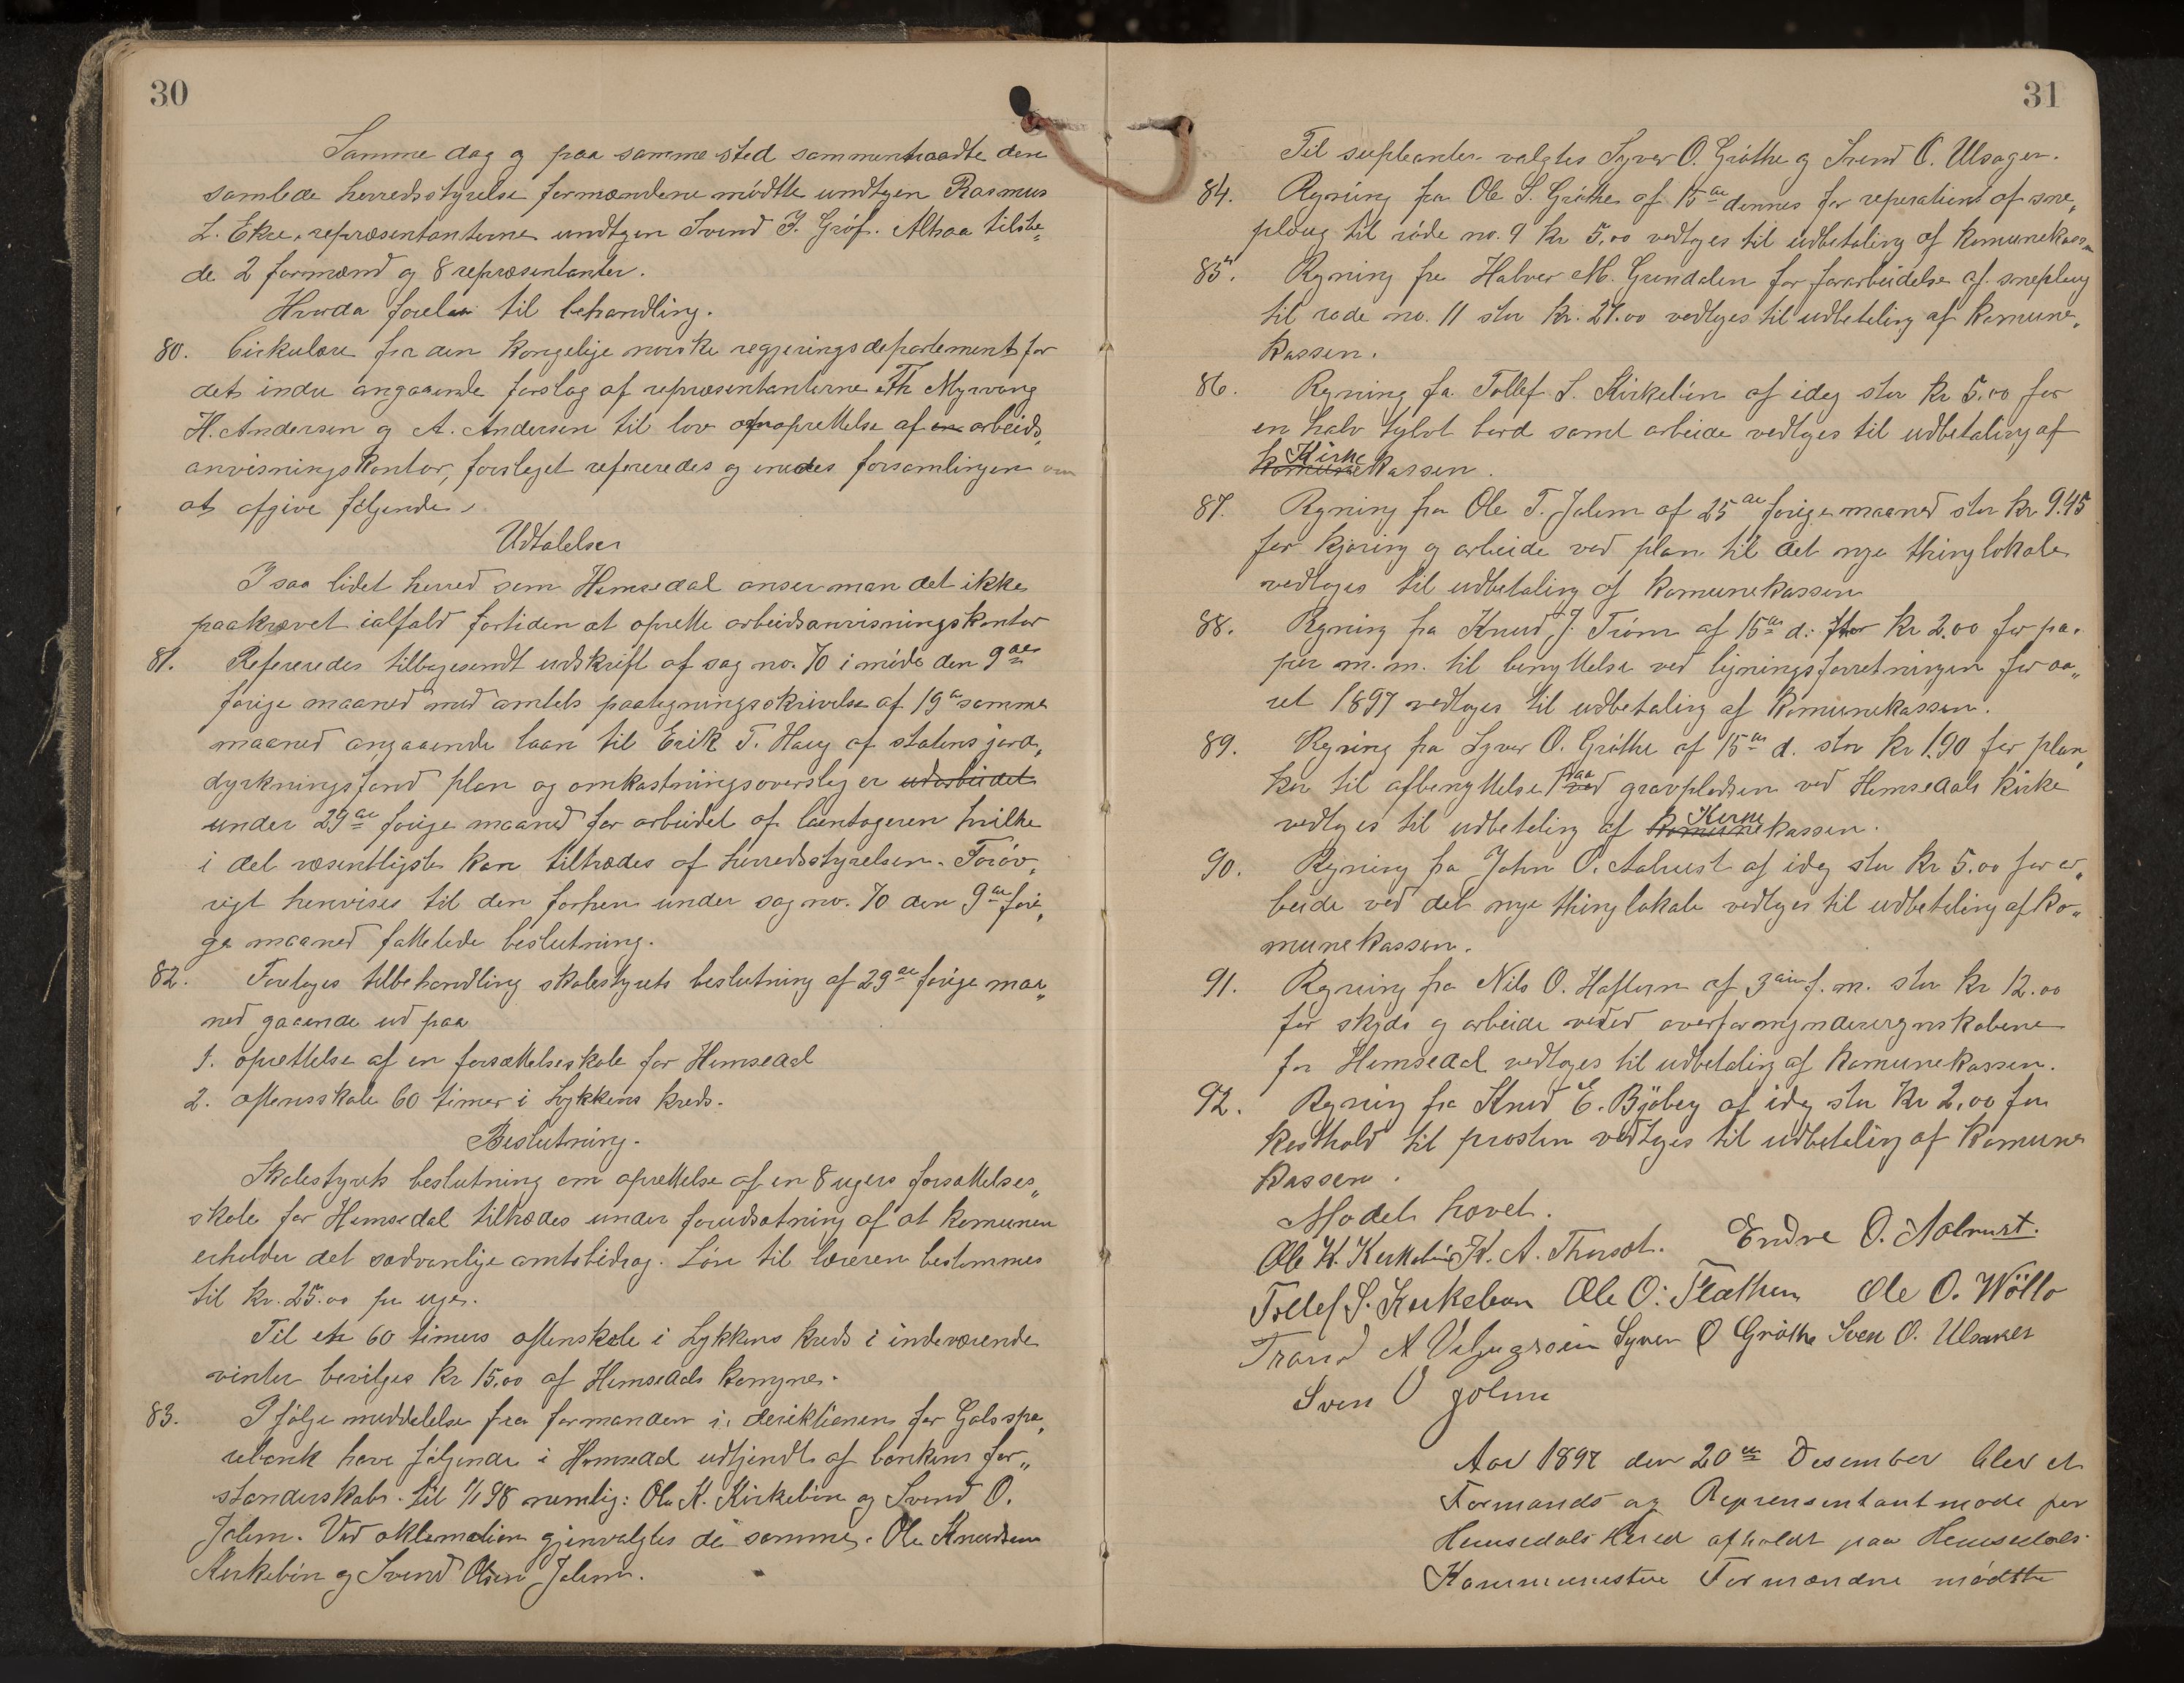 30
Samme dag og paa samme sted sammentraadte den
samlede herredsstyrelse formændene mødtte undtgen Rasmus
L. Ekre, repræsentanterne undtgen Svend J. Grøf. Altsaa tilste„
de 2 formænd og 8 repræsentanter.
Hvorda forelaa til behandling.
80. Cirkulære fra den kongelige norske regjerings departement for
det indre angaaende forslag af repræsentanterne Th Myrvang
H. Andersen og A. Andersen til lov oprettelse af en arbeids„
anvisningskontor, forslaget refereredes og enedes forsamlingen om
at afgive følgende
Udtalelse
I saa lidet herred som Hemsedal anser man det ikke
paakrævet ialfald fortiden at oprette arbeidsanvisningskontor
81. Refereredes tilbagesendt udskrift af sag no. 70 i møde den 9de
forige maaned med amtets paategningsskrivelse af 19de samme
maaned angaaende laan til Erik T. Haug af statens jord„
dyrkningsfond plan og omkastningsoverslag er udarbeidet
under 29de forige maaned for arbeidet af laantageren hvilke
i det væsentligste kan tiltrædes af herredsstyrelsen. Forøv„
rigt henvises til den forhen under sag no. 70 den 9de fori„
ge maaned fattetede beslutning.
82. Foretoges tilbehandling skolestyrets beslutning af 29de forige maa„
ned gaaende ud paa
1. oprettelse af en forsættelseskole for Hemsedal
2. aftensskole 60 timer i Lykkens kreds.
Beslutning.
Skolestyrets beslutning om oprettelse af en 8 ugers forsættelses„
skole for Hemsedal tiltrædes under forudsætning af at komunen
erholder det sædvanlige amtsbidrag. Løn til læreren bestemmes
til kr. 25.00 pr uge.
Til en 60 timers aftenskole i Lykkens kreds i indeværende
vinter bevilges kr 15,00 af Hemsedals komyne.
83. I følge meddelelse fra formanden i direktionen for Gols spa„
rebank have følgende i Hemsedal udtjendt af bankens for„
standerskab til 1/1 98 nemlig: Ole K. Kirkebøn og Svend O.
Jalem. Ved aklamation gjenvalgtes de samme. Ole Knudsen
Kirkebøn og Svend Olsen Jalem.
31
Til supleanter valgtes Syver O. Grøthe og Svend O. Ulsager.
84. Regning fra Ole S. Grøthe af 15de dennes for reperationt af sne„
ploug til rode no. 9 kr 5,00 vedtoges til udbetaling af komunekassen
85. Regning fra Halvor M. Grøndalen for forarbeidelse af sneploug
til rode no. 11 stor kr. 27.00 vedtoges til udbetaling af komune„
kassen.
86. Regning fa Tollef S. Kirkebøn af idag stor kr 5,00 for
en halv tylvt bord samt arbeide vedtoges til udbetaling af
komune Kirke kassen.
87. Regning fra Ole T. Jalem af 25de forige maaned stor kr 9.45
for kjøring og arbeide ved plan til det nye thinglokale
vedtoges til udbetaling af komunekassen
88. Regning fra Knud J. Trøm af 15de d. stor kr 2.00 for pa„
pir m. m. til benyttelse ved ligningsforretningen for aa„
ret 1897 vedtoges til udbetaling af komunekassen.
89. Regning fra Syver O. Grøthe af 15de d. stor kr 1.90 for plan„
ker til afbenyttelse ved paa gravpladsen ved Hemsedals kirke
vedtoges til udbetaling af komune Kirke kassen.
90. Regning fra John O. Aalrust af idag stor kr 5.00 for ar„
beide ved det nye thinglokale vedtoges til udbetaling af ko„
munekassen.
91. Regning fra Nils O. Haftern af 3die f. m. stor kr 12.00
for skyds og arbeide vedved overformynderregnskabene
for Hemsedal vedtoges til udbetaling af komunekassen.
92. Regning fra Knud E. Bjøberg af idag stor kr 2,00 for
kosthold til prosten vedtoges til udbetaling af komune
kassen.
Mødet hævet.
Ole K. Kirkebøn K. A. Thorset. Endre O. Aalrust.
Tollef S. Kirkebøen Ole O. Flathen Ole O. Wøllo
Trond A Syver O Grøthe Sven O. Ulsaker
Sven O Jolme
Aar 1897 den 20de Desember blev et
Formands og Reprensentantmøde for
Hemsedals Hered afholdt paa Hemsedals
Formændne mødtte